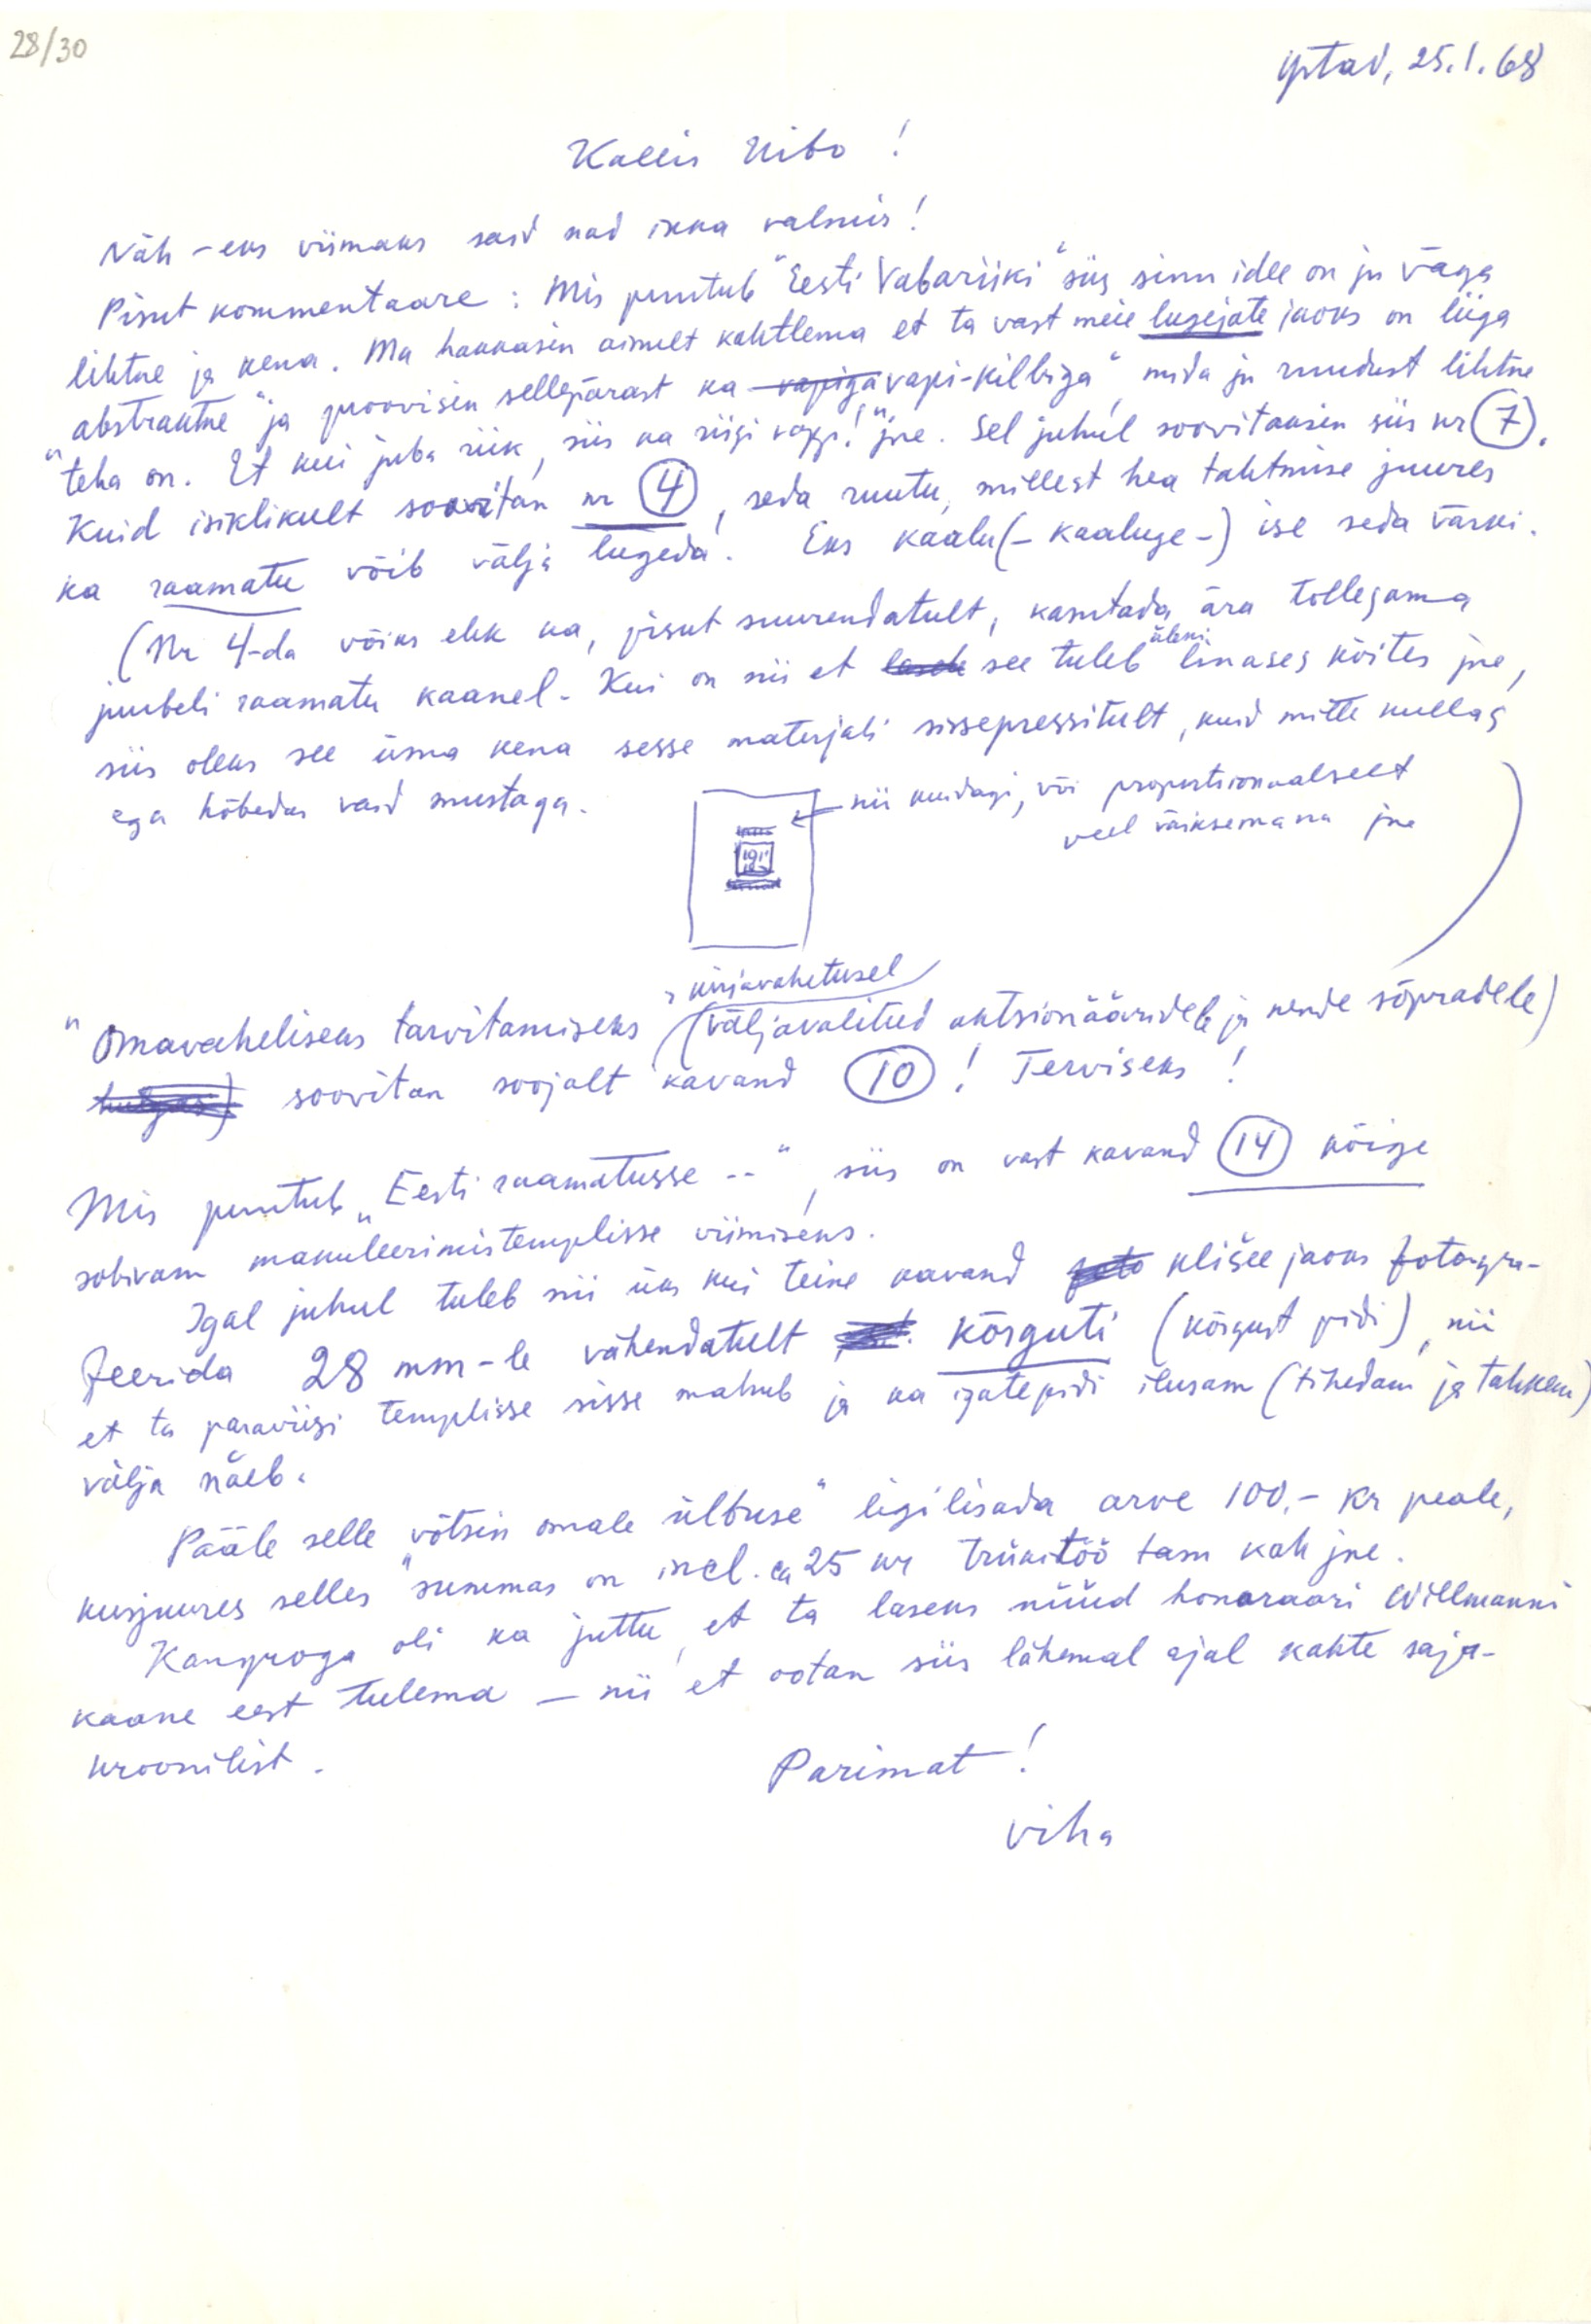 28/30
Ystad, 25.1.68
Kallis Uibo!
Näh - eks viimaks said nad ikka valmis!
Pisut kommentaare: Mis puutub "Eesti Vabariiki" siis sinu idee on ju väga
lihtne ja kena. Ma hakkasin ainult kahtlema et ta vast meie lugejate jaoks on liiga
"abstraktne" ja proovisin sellepärast ka vapiga vapi-kilbiga, mida ju ruudust lihtne
teha on. "Et kui juba riik, siis ka riigi vapp!" jne. Sel juhul soovitaksin siis nr 7.
Kuid isiklikult soovitan nr 4, seda ruutu, millest hea tahtmise juures
ka raamatu võib välja lugeda. Eks kaalu (- kaaluge -) ise seda värki.
(Nr 4-da võiks ehk ka, pisut suurendatult, kasutada ära tollesama
juubeli raamatu kaanel. Kui on nii et see tuleb üleni linases köites jne,
siis oleks see üsna kena sesse materjali sissepressitult, kuid mitte kullas
ega hõbedas vaid mustaga.
nii kuidagi, või proportsionaalselt
veel väiksemana jne
kirjavahetusel
"Omavaheliseks tarvitamiseks" (väljavalitud aktsionääridele ja nende sõpradele)
soovitan soojalt kavand 10! Terviseks!
Mis puutub "Eesti raamatusse --", siis on vast kavand 14 kõige
sobivam makuleerimistemplisse viimiseks.
Igal juhul tuleb nii üks kui teine kavand foto klišee jaoks fotogra-
feerida 28 mm-le vähendatult kõrguti (kõrgust pidi), nii
et ta paraviisi templisse sisse mahub ja ka igatepidi ilusam (tihedam ja tahkem)
välja näeb.
Pääle selle võtsin omale "ülbuse" ligi lisada arve 100,- kr peale,
kusjuures selles summas on incl. ca 25 kr trükitöö tasu kah jne.
Kangroga oli ka juttu, et ta laseks nüüd honoraari Willmanni
kaane eest tulema - nii et ootan siis lähemal ajal kahte saja-
kroonilist.
Parimat!
viha